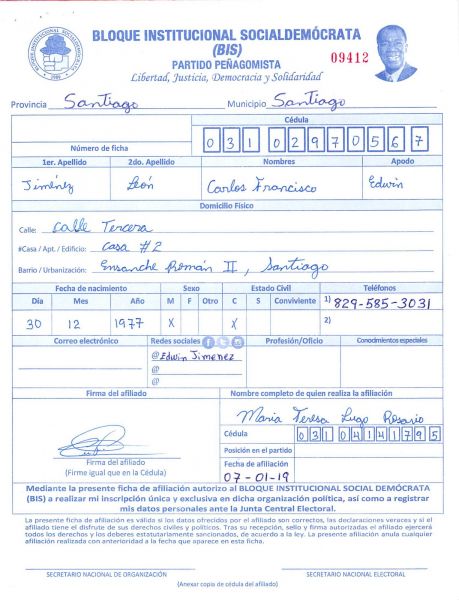 BLOQUE INSTITUCIONAL SOCIALDEMÓCRATA
(BIS)
PARTIDO PEÑAGOMISTA
09412
Libertad, Justicia, Democracia y Solidaridad
Provincia Santiago Municipio Santiago
Cédula
Número de ficha 031 0297056 7
1er. Apellido 2do. Apellido Nombres Apodo
Jiménez León Carlos Francisco Edwin
Domicilio Físico
Calle: Calle Tercera
#Casa / Apt. / Edificio: Casa #2
Barrio / Urbanización: Ensanche Román II, Santiago
Fecha de nacimiento Sexo Estado Civil Teléfonos
Día Mes Año M F Otro C S Conviviente 1) 829-585-3031
30 12 1977 X X 2)
Correo electrónico Redes sociales Profesión/Oficio Conocimientos especiales
@Edwin Jimenez
@
@
Firma del afiliado Nombre completo de quien realiza la afiliación
Maria Teresa Lugo Rosario
Cédula 03104141795
Posición en el partido
Firma del afiliado
(Firme igual que en la Cédula)
Fecha de afiliación
07-01-19
Mediante la presente ficha de afiliación autorizo al BLOQUE INSTITUCIONAL SOCIAL DEMÓCRATA
(BIS) a realizar mi inscripción única y exclusiva en dicha organización política, así como a registrar
mis datos personales ante la Junta Central Electoral.
La presente ficha de afiliación es válida si los datos ofrecidos por el afiliado son correctos, las declaraciones veraces y si el
afiliado tiene el disfrute de sus derechos civiles y políticos. Tras su recepción, sello y firma autorizadas el afiliado ejercerá
todos los derechos y los deberes estatutariamente sancionados, de acuerdo a la ley. La presente afiliación anula cualquier
afiliación realizada con anterioridad a la fecha que aparece en esta ficha.
SECRETARIO NACIONAL DE ORGANIZACIÓN SECRETARIO NACIONAL ELECTORAL
(Anexar copia de cédula del afiliado)